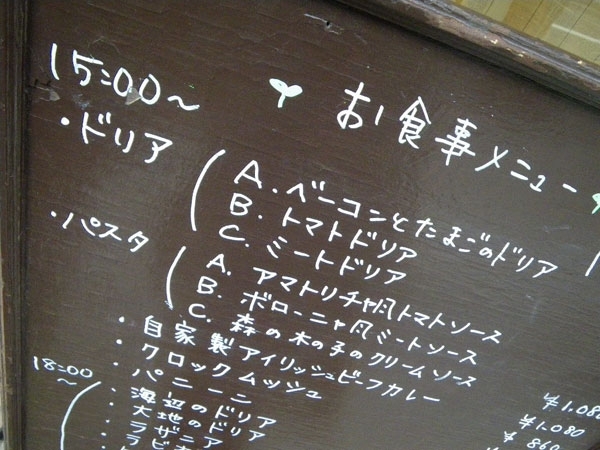 お食事メニュー
15:00～
・ドリア
A. ベーコンとたまごのドリア
B. トマトドリア
C. ミートドリア
・パスタ
A. アマトリチャ風トマトソース
B. ボローニャ風ミートソース
C. 森の木の子のクリームソース
・自家製アイリッシュビーフカレー ¥1,080
・クロックムッシュ ¥1,080
・パニーニ ¥860
18:00～
・海辺のドリア
・大地のドリア
・ラザニア
・ラビオ